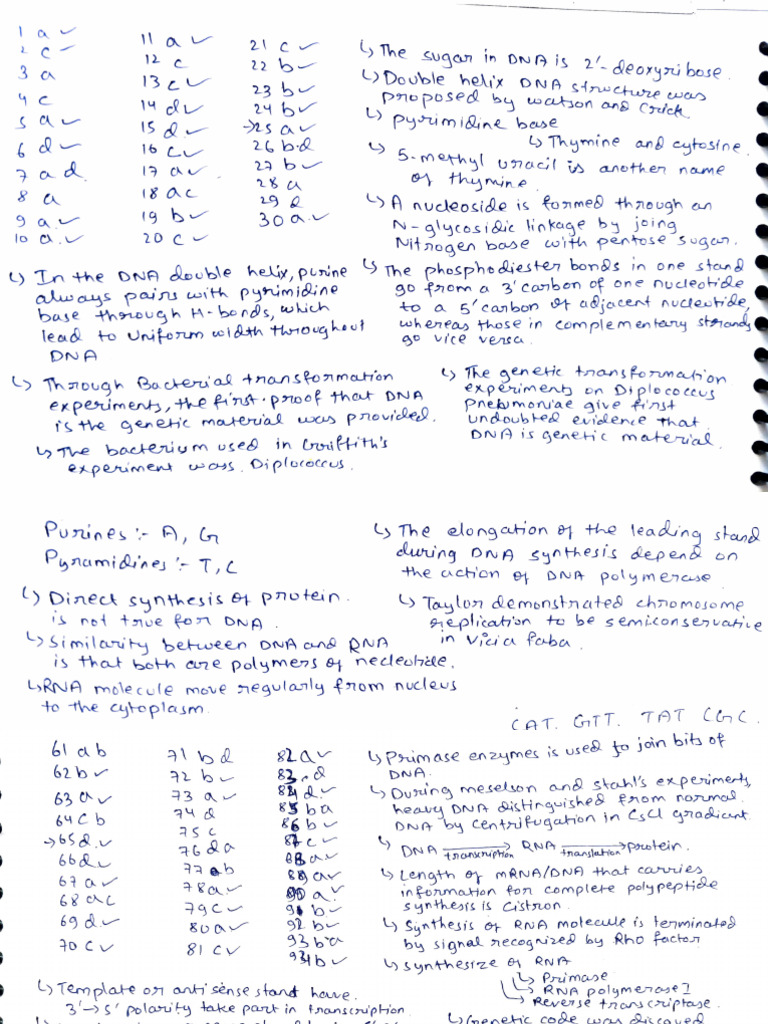 1 a ✓
2 c ✓
3 a
4 c
5 a ✓
6 d ✓
7 a d.
8 a
9 a ✓
10 a. ✓
11 a ✓
12 c
13 c ✓
14 d ✓
15 d ✓
16 c ✓
17 a ✓
18 a c
19 b ✓
20 c ✓
21 c ✓
22 b ✓
23 b ✓
24 b ✓
→25 a ✓
26 b d
27 b ✓
28 a
29 d
30 a ✓
↳ The sugar in DNA is 2'-deoxyribose.
↳ Double helix DNA structure was
proposed by watson and Crick
↳ pyrimidine base
↳ Thymine and cytosine.
↳ 5-methyl uracil is another name
of thymine.
↳ A nucleoside is formed through an
N-glycosidic linkage by joing
Nitrogen base with pentose sugar.
↳ In the DNA double helix, purine
always pairs with pyrimidine
base through H-bonds, which
lead to uniform width throughout
DNA
↳ The phosphodiester bonds in one stand
go from a 3' carbon of one nucleotide
to a 5' carbon of adjacent nucleotide,
whereas those in complementary strands
go vice versa.
↳ Through Bacterial transformation
experiments, the first proof that DNA
is the genetic material was provided.
↳ The bacterium used in Griffith's
experiment was. Diplococcus.
↳ The genetic transformation
experiments on Diplococcus
pneumoniae give first
undoubted evidence that
DNA is genetic material.
Purines :- A, G
Pyramidines :- T, C
↳ Direct synthesis of protein.
is not true for DNA.
↳ Similarity between DNA and RNA
is that both are polymers of necleotide.
↳ RNA molecule move regularly from nucleus
to the cytoplasm.
↳ The elongation of the leading stand
during DNA synthesis depend on
the action of DNA polymerase
↳ Taylor demonstrated chromosome
replication to be semiconservative
in Vicia faba.
CAT. GTT. TAT CGC.
61 a b
62 b ✓
63 a ✓
64 c b
→65 d ✓
66 d ✓
67 a ✓
68 a c
69 d ✓
70 c ✓
71 b d
72 b ✓
73 a ✓
74 d
75 c
76 d a
77 a b
78 a ✓
79 c ✓
80 a ✓
81 c ✓
82 a ✓
83. d
84 d ✓
85 b a
86 b ✓
87 c ✓
88 a ✓
89 a ✓
90 a ✓
91 b ✓
92 b ✓
93 b a
94 b ✓
↳ Primase enzymes is used to join bits of
DNA.
↳ During meselson and stahl's experiments,
heavy DNA distinguished from normal
DNA by centrifugation in CsCl gradient.
↳ DNA transcription → RNA translation → protein.
↳ Length of mRNA/DNA that carries
information for complete polypeptide
synthesis is Cistron.
↳ Synthesis of RNA molecule is terminated
by signal recognized by Rho factor
↳ synthesize of RNA
↳ Primase
↳ RNA polymerase I
↳ Reverse transcriptase.
↳ Template or anti sense stand have.
3' → 5' polarity take part in transcription.
↳ Genetic code was